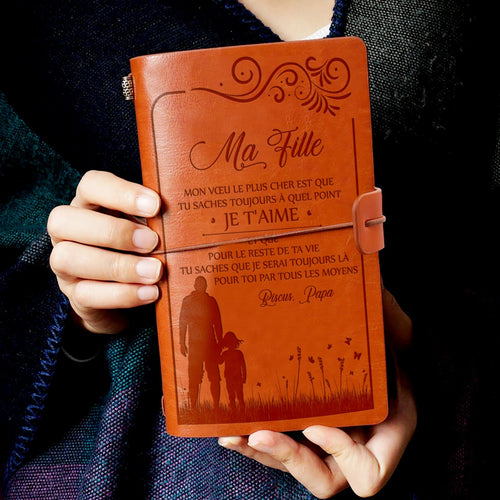 Ma Fille
MON VŒU LE PLUS CHER EST QUE
TU SACHES TOUJOURS À QUEL POINT
JE T'AIME
ET QUE
POUR LE RESTE DE TA VIE
TU SACHES QUE JE SERAI TOUJOURS LÀ
POUR TOI PAR TOUS LES MOYENS
Biscus, Papa